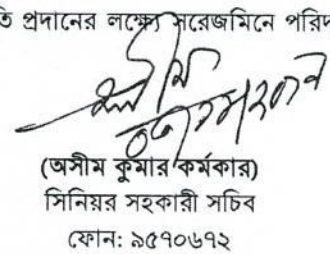 তি প্রদানের লক্ষ্যে সরেজমিনে পরিদ
(অসীম কুমার কর্মকার)
সিনিয়র সহকারী সচিব
ফোন: ৯৫৭০৬৭২